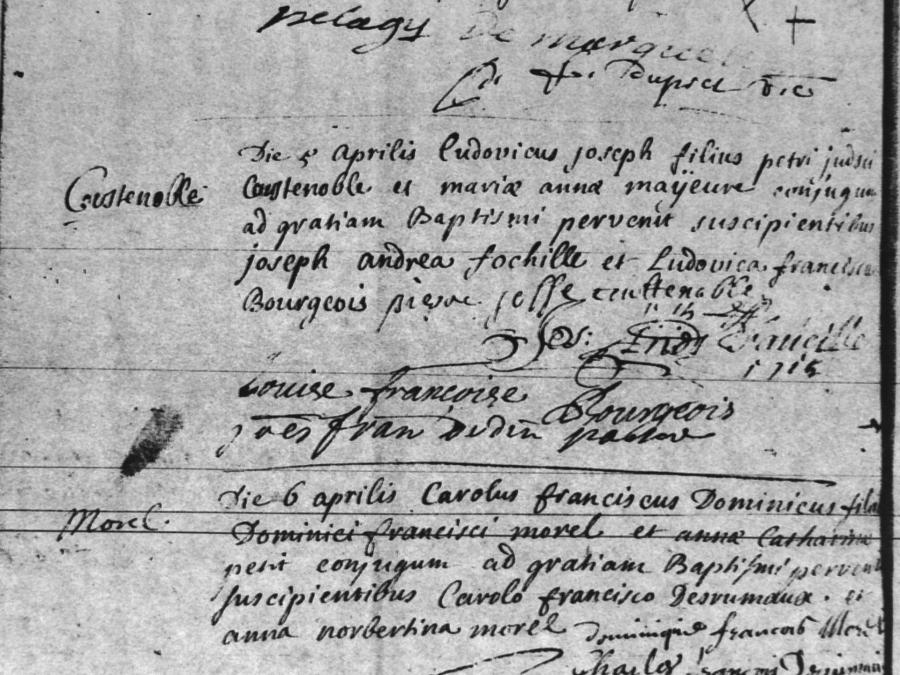 pelagy de
vic
Die 5 aprilis Ludovicus joseph filius petri
Coustenoble
Coustenoble et mariæ annæ maÿeure conjugum
ad gratiam Baptismi pervenit suscipientibus
joseph andrea fochille et Ludovica francisca
Bourgeois pierre josse
fauielle
1715
Louise françoise Bourgeois
fran pastor
Die 6 aprilis Carolus franciscus Dominicus
Morel
Dominici francisci morel et annæ Catharinæ
petit conjugum ad gratiam Baptismi pervenit
suscipientibus Carolo francisco Desrumaux et
anna norbertina morel dominique francois Morel
Charles françois